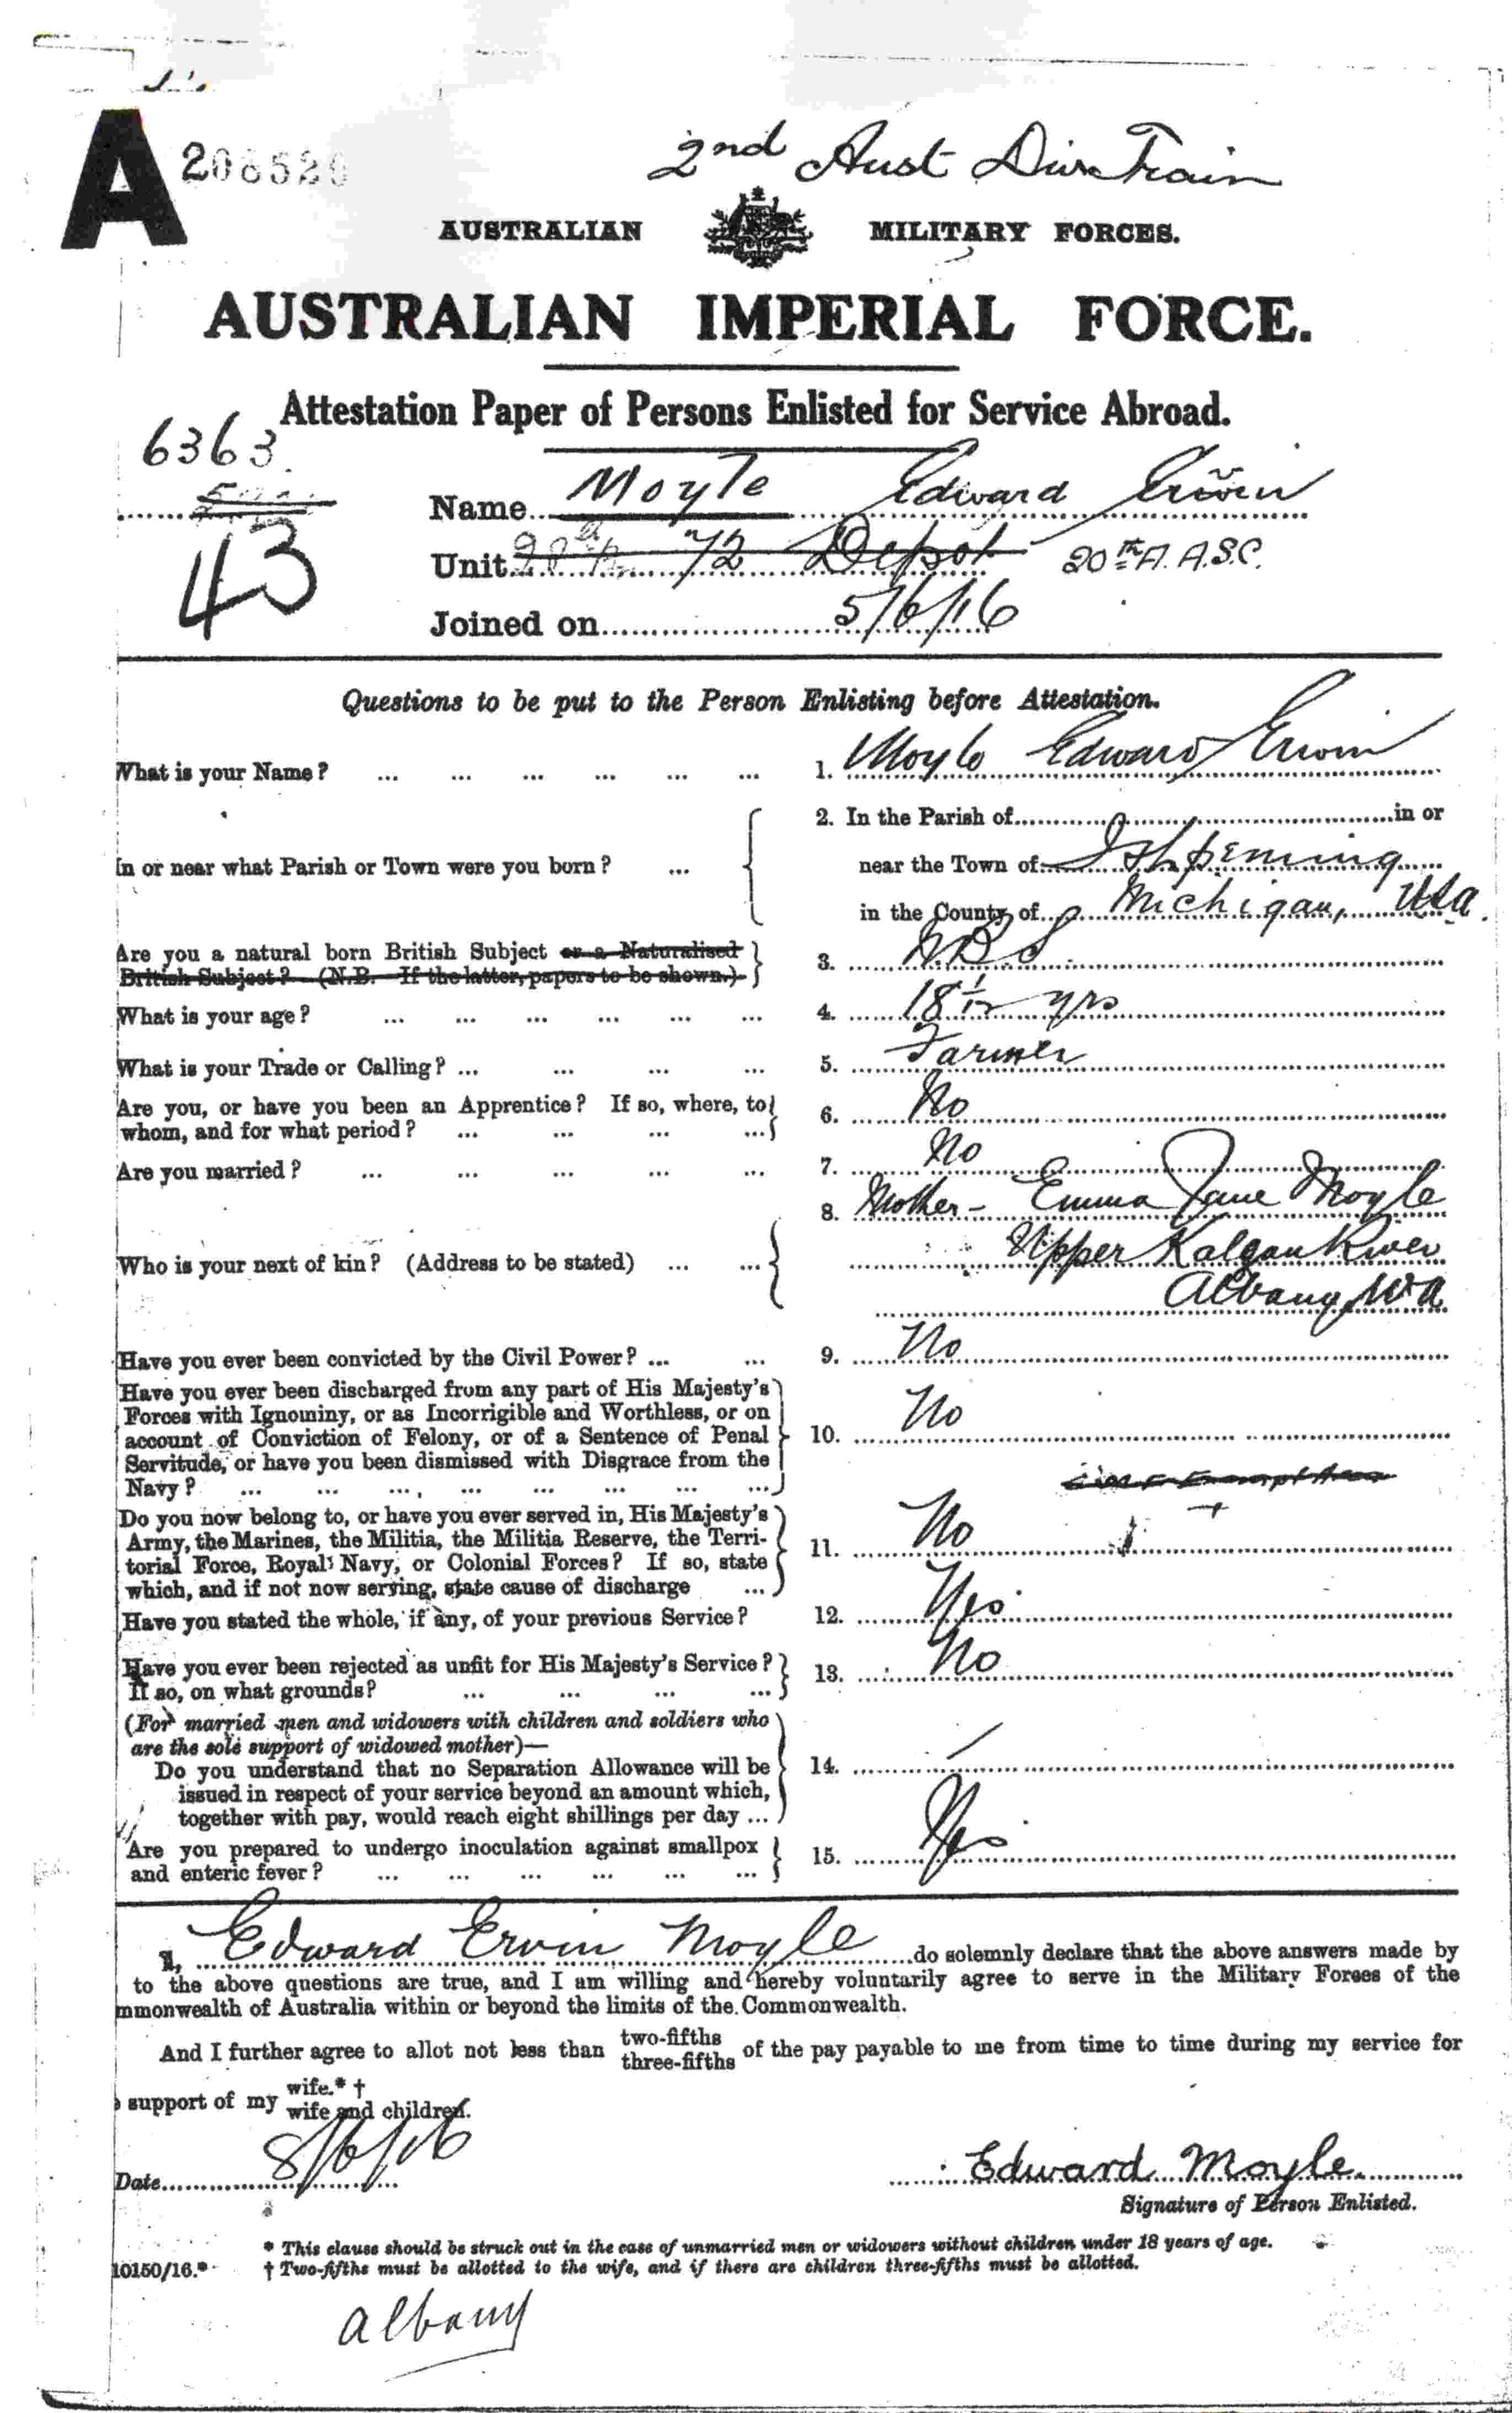 A 208520
2nd Aust Div Train
AUSTRALIAN MILITARY FORCES.
AUSTRALIAN IMPERIAL FORCE.
Attestation Paper of Persons Enlisted for Service Abroad.
6363
43
Name Moyle Edward Ervin
Unit 72 Depot 20th A.A.S.C.
Joined on 5/6/16
Questions to be put to the Person Enlisting before Attestation.
What is your Name? ... ... ... ... ... ... 1. Moyle Edward Ervin
2. In the Parish of in or
In or near what Parish or Town were you born? ... near the Town of Ishpeming
in the County of Michigan, USa.
Are you a natural born British Subject or a Naturalised
British Subject? (N.B. If the latter, papers to be shown.) 3. NBS
What is your age? ... ... ... ... ... ... 4. 18 1/12 yrs
What is your Trade or Calling? ... ... ... ... 5. Farmer
Are you, or have you been an Apprentice? If so, where, to
whom, and for what period? ... ... ... ... 6. No
Are you married? ... ... ... ... ... 7. No
8. Mother - Emma Jane Moyle
Who is your next of kin? (Address to be stated) ... ... Upper Kalgan River
Albany, Wa
Have you ever been convicted by the Civil Power? ... ... 9. No
Have you ever been discharged from any part of His Majesty's
Forces with Ignominy, or as Incorrigible and Worthless, or on
account of Conviction of Felony, or of a Sentence of Penal 10. No
Servitude, or have you been dismissed with Disgrace from the
Navy? ... ... ... ... ... ... ... ...
Do you now belong to, or have you ever served in, His Majesty's
Army, the Marines, the Militia, the Militia Reserve, the Terri-
torial Force, Royal Navy, or Colonial Forces? If so, state 11. No
which, and if not now serving, state cause of discharge ...
Have you stated the whole, if any, of your previous Service? 12. Yes
Have you ever been rejected as unfit for His Majesty's Service? 13. No
If so, on what grounds? ... ... ... ...
(For married men and widowers with children and soldiers who
are the sole support of widowed mother)—
Do you understand that no Separation Allowance will be 14. /
issued in respect of your service beyond an amount which,
together with pay, would reach eight shillings per day ...
Are you prepared to undergo inoculation against smallpox 15. Yes
and enteric fever? ... ... ... ... ... ...
I, Edward Ervin Moyle do solemnly declare that the above answers made by
to the above questions are true, and I am willing and hereby voluntarily agree to serve in the Military Forces of the
mmonwealth of Australia within or beyond the limits of the Commonwealth.
And I further agree to allot not less than two-fifths three-fifths of the pay payable to me from time to time during my service for
support of my wife.* † wife and children.
Date 8/6/16 Edward Moyle.
Signature of Person Enlisted.
* This clause should be struck out in the case of unmarried men or widowers without children under 18 years of age.
10150/16.* † Two-fifths must be allotted to the wife, and if there are children three-fifths must be allotted.
Albany